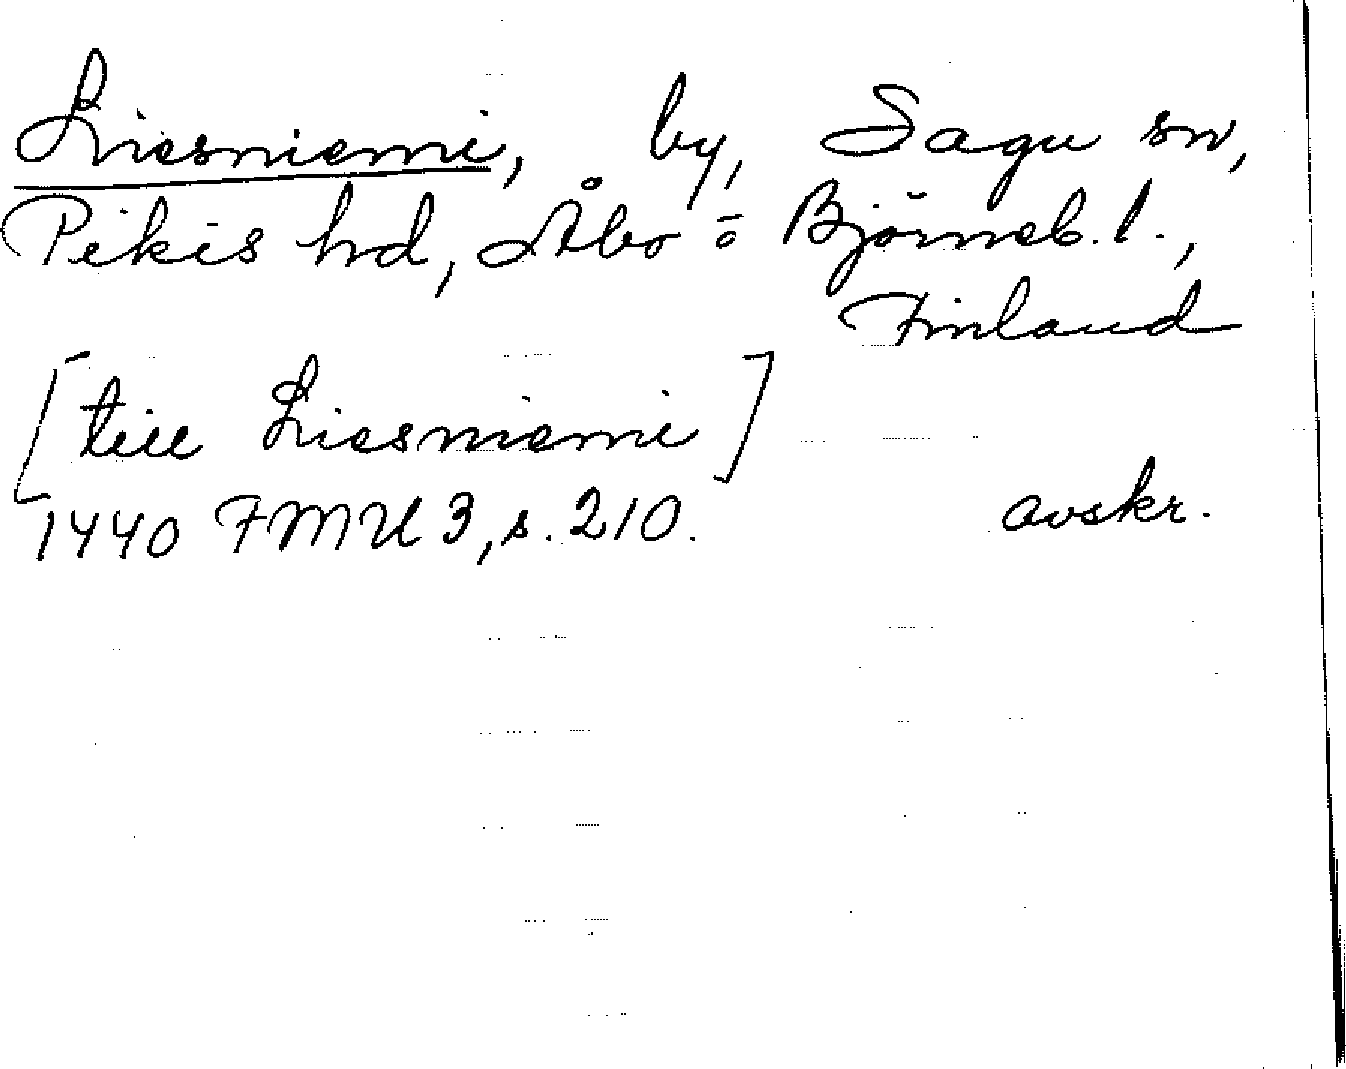 Liesniemi, by, Sagu sn,
Pikis hd, Åbo o Björneb. l.,
Finland
[till Liesniemi]
1440 FMU 3, s. 210. avskr.